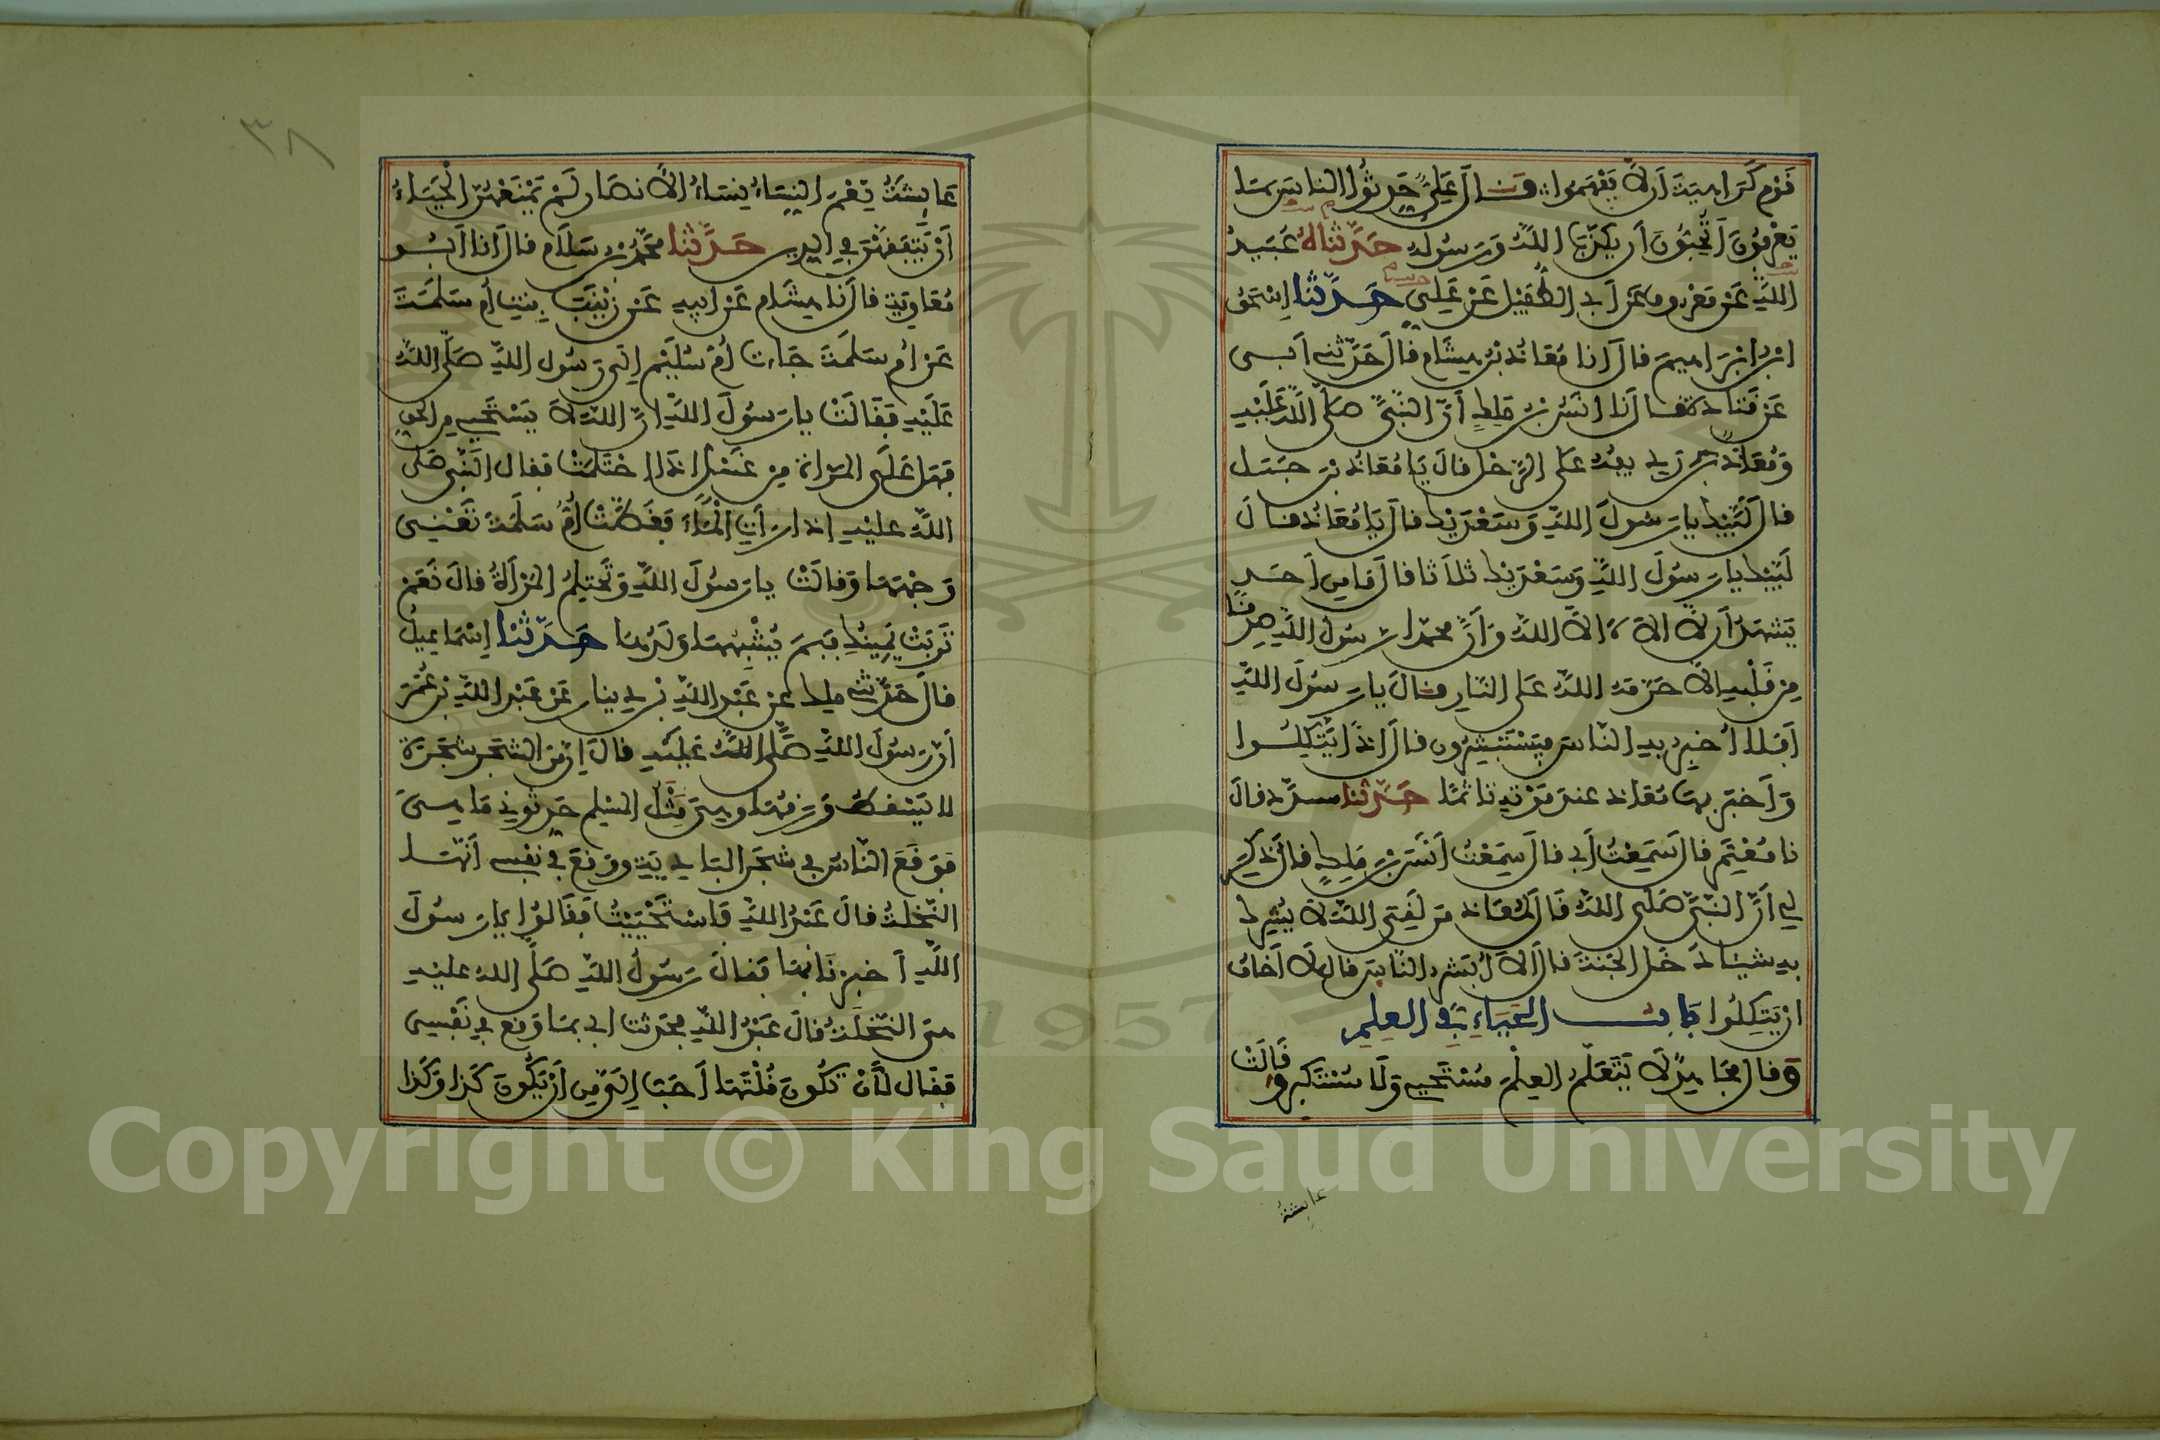 قوم كراهية أن لا يفهموا وقال علي حدثوا الناس بما
يعرفون أتحبون أن يكذب الله ورسوله حدثنا به عبيد
الله عن معروف عن أبي الطفيل عن علي حدثنا إسحق
ابن إبراهيم قال انا معاذ بن هشام قال حدثني أبي
عن قتادة قال نا انس بن ملك أن النبي صلى الله عليه
ومعاذ رديفه على الرحل قال يا معاذ بن جبل
قال لبيك يا رسول الله وسعديك قال يا معاذ قال
لبيك يا رسول الله وسعديك ثلاثا قال ما من أحد
يشهد أن لا اله الا الله وأن محمدا رسول الله صدقا
من قلبه الا حرمه الله على النار قال يا رسول الله
افلا أخبر به الناس فيستبشرون قال اذا يتكلوا
وأخبر بها معاذ عند موته تاثما حدثنا مسدد قال
نا معتمر قال سمعت أبي قال سمعت أنس بن ملك قال ذكر
لي أن النبي صلى الله قال لمعاذ من لقي الله لا يشرك
به شيئا دخل الجنة قال ألا أبشر الناس قال لا أخاف
ان يتكلوا باب الحياء في العلم
وقال مجاهد لا يتعلم العلم مستحيي ولا مستكبر وقالت
عايشة
٣٨
عايشة نعم النساء نساء الأنصار لم يمنعهن الحياء
أن يتفقهن في الدين حدثنا محمد بن سلام قال انا ابو
معاوية قال نا هشام عن ابيه عن زينب بنت أم سلمة
عن أم سلمة جاءت أم سليم الى رسول الله صلى الله
عليه فقالت يا رسول الله ان الله لا يستحيي من الحق
فهل على المرأة من غسل اذا احتلمت فقال النبي صلى
الله عليه اذا رأت الماء فغطت أم سلمة تعني
وجهها وقالت يا رسول الله وتحتلم المرأة قال نعم
تربت يمينك فبم يشبهها ولدها حدثنا إسماعيل
قال حدثني ملك عن عبد الله بن دينار عن عبد الله بن عمر
أن رسول الله صلى الله عليه قال ان من الشجر شجرة
لا يسقط ورقها وهي مثل المسلم حدثوني ما هي
فوقع الناس في شجر البادية ووقع في نفسي أنها
النخلة قال عبد الله فاستحييت فقالوا يا رسول
الله أخبرنا بها فقال رسول الله صلى الله عليه
هي النخلة قال عبد الله فحدثت ابي بما وقع في نفسي
فقال لأن تكون قلتها أحب إلي من أن يكون كذا وكذا
1957
Copyright © King Saud University